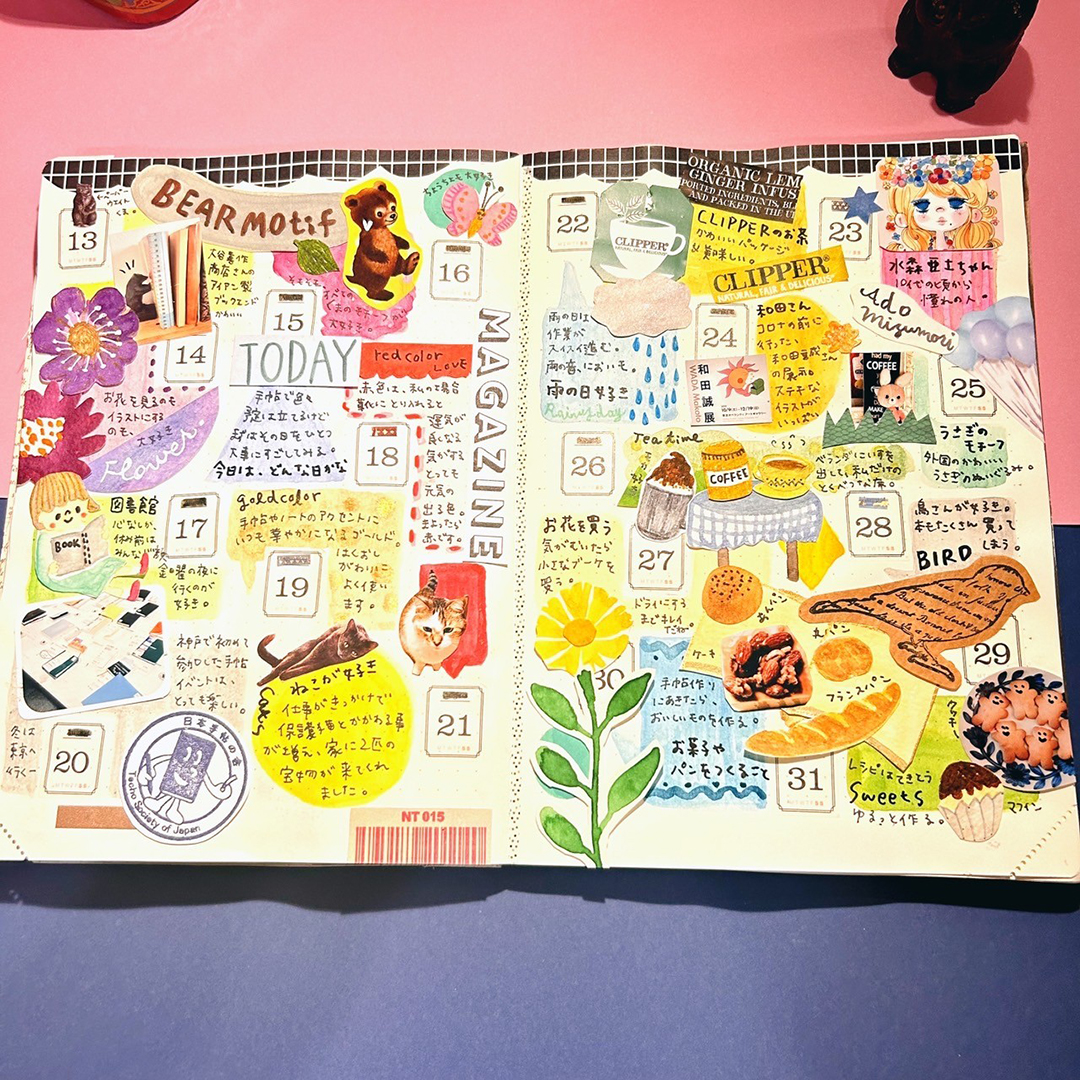 ペーパー
ウエイト
くま。
13
BEAR MOTIF
ちょうちょも大好き
16
大谷喜作
商店さんの
アイアン製
ブックエンド
かわいい
15
くまのモチーフ
大好き。
14
TODAY
red color
LOVE
MAGAZINE
お花を見るのも
イラストにする
のも、
大好き
Flower
手帖で
予定は立てるけど
まずはその日をひとつ
大事にすごしてみる。
今日は、どんな日かな
赤色は、私の場合
運気が
良くなる
気がする
とっても
元気の
出る色。
まよったら
赤です。
18
図書館
心なしか、
休み前は
みんな
金曜の夜に
行くのが
好き。
BOOK
17
goldcolor
手帖やノートのアクセントに
いつも華やかになるゴールド。
はくおし
がわりに
よく使い
ます。
19
神戸で初めて
参加した手帖
イベントは、
とっても楽しい。
ねこが好き
Cats
仕事がきっかけで
保護猫とかかわる事
が増え、家に2匹の
宝物が来てくれ
ました。
21
冬は
東京へ
行くー
20
日本手帖の会
Techo Society of Japan
NT 015
22
ORGANIC LEM
GINGER INFUS
PORTED INGREDIENTS, BL
AND PACKED IN THE U
CLIPPER
NATURAL, FAIR & DELICIOUS
CLIPPERのお茶
かわいいパッケージ
美味しい。
CLIPPER
NATURAL, FAIR & DELICIOUS
23
水森亜土ちゃん
10代の頃から
憧れの人。
Ado
Mizumori
雨の日は
作業が
スイスイ進む。
雨の音、においも。
雨の日好き
Rainy day
24
和田さん
コロナの前に
行った
和田誠さん
の展示。
ステキな
イラストが
いっぱい
和田誠展
WADA Makoto
had my
COFFEE
25
うさぎの
モチーフ
外国のかわいい
うさぎのぬいぐるみ。
26
Tea time
COFFEE
ベランダにいすを
出して、私だけの
とくべつな席。
28
鳥さんが好き。
本もたくさん買って
しまう。
BIRD
お花を買う
気がむいたら
小さなブーケを
買う。
27
ドライにする
までキレイ
だね。
30
ケーキ
あんパン
丸パン
フランスパン
29
手帖作り
にあきたら、
おいしいものを作る。
お菓子や
パンをつくること
31
クッキー
レシピはてきとう
Sweets
ゆるっと作る。
マフィン